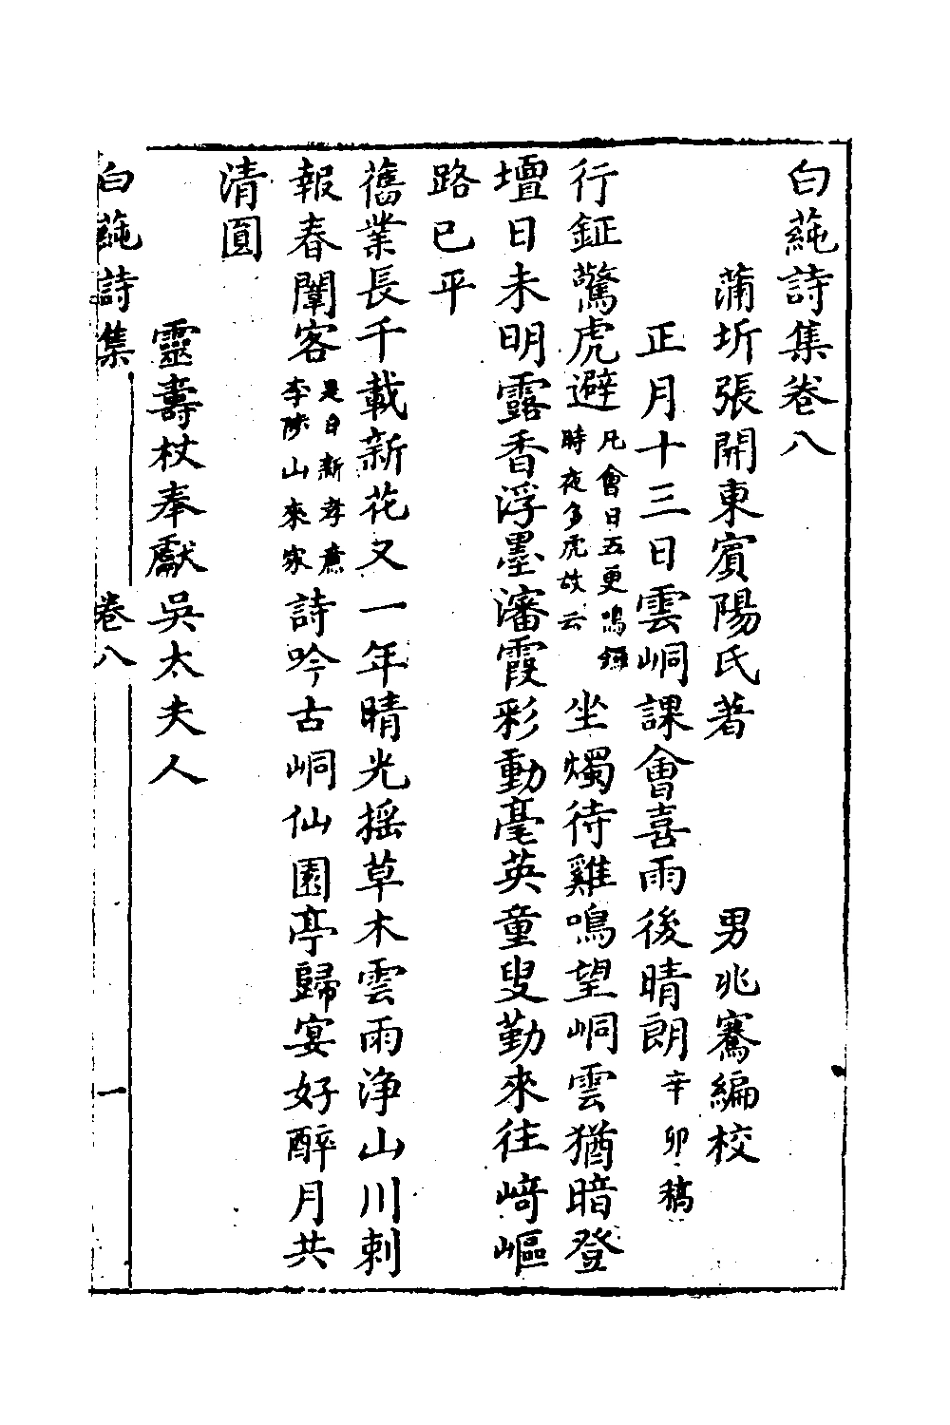 白蒓詩集卷八
蒲圻張開東賓陽氏著 男兆騫編校
正月十三日雲峒課會喜雨後晴朗辛卯稿
行鉦驚虎避凡會日五更鳴鉦時夜多虎故云坐燭待雞鳴望峒雲猶暗登
壇日未明露香浮墨瀋霞彩動毫英童叟勤來往崎嶇
路已平
舊業長千載新花又一年晴光搖草木雲雨净山川剌
報春闈客是日新孝廉李陟山來家詩吟古峒仙園亭歸宴好醉月共
清圓
靈壽杖奉獻吳太夫人
白蒓詩集 卷八 一